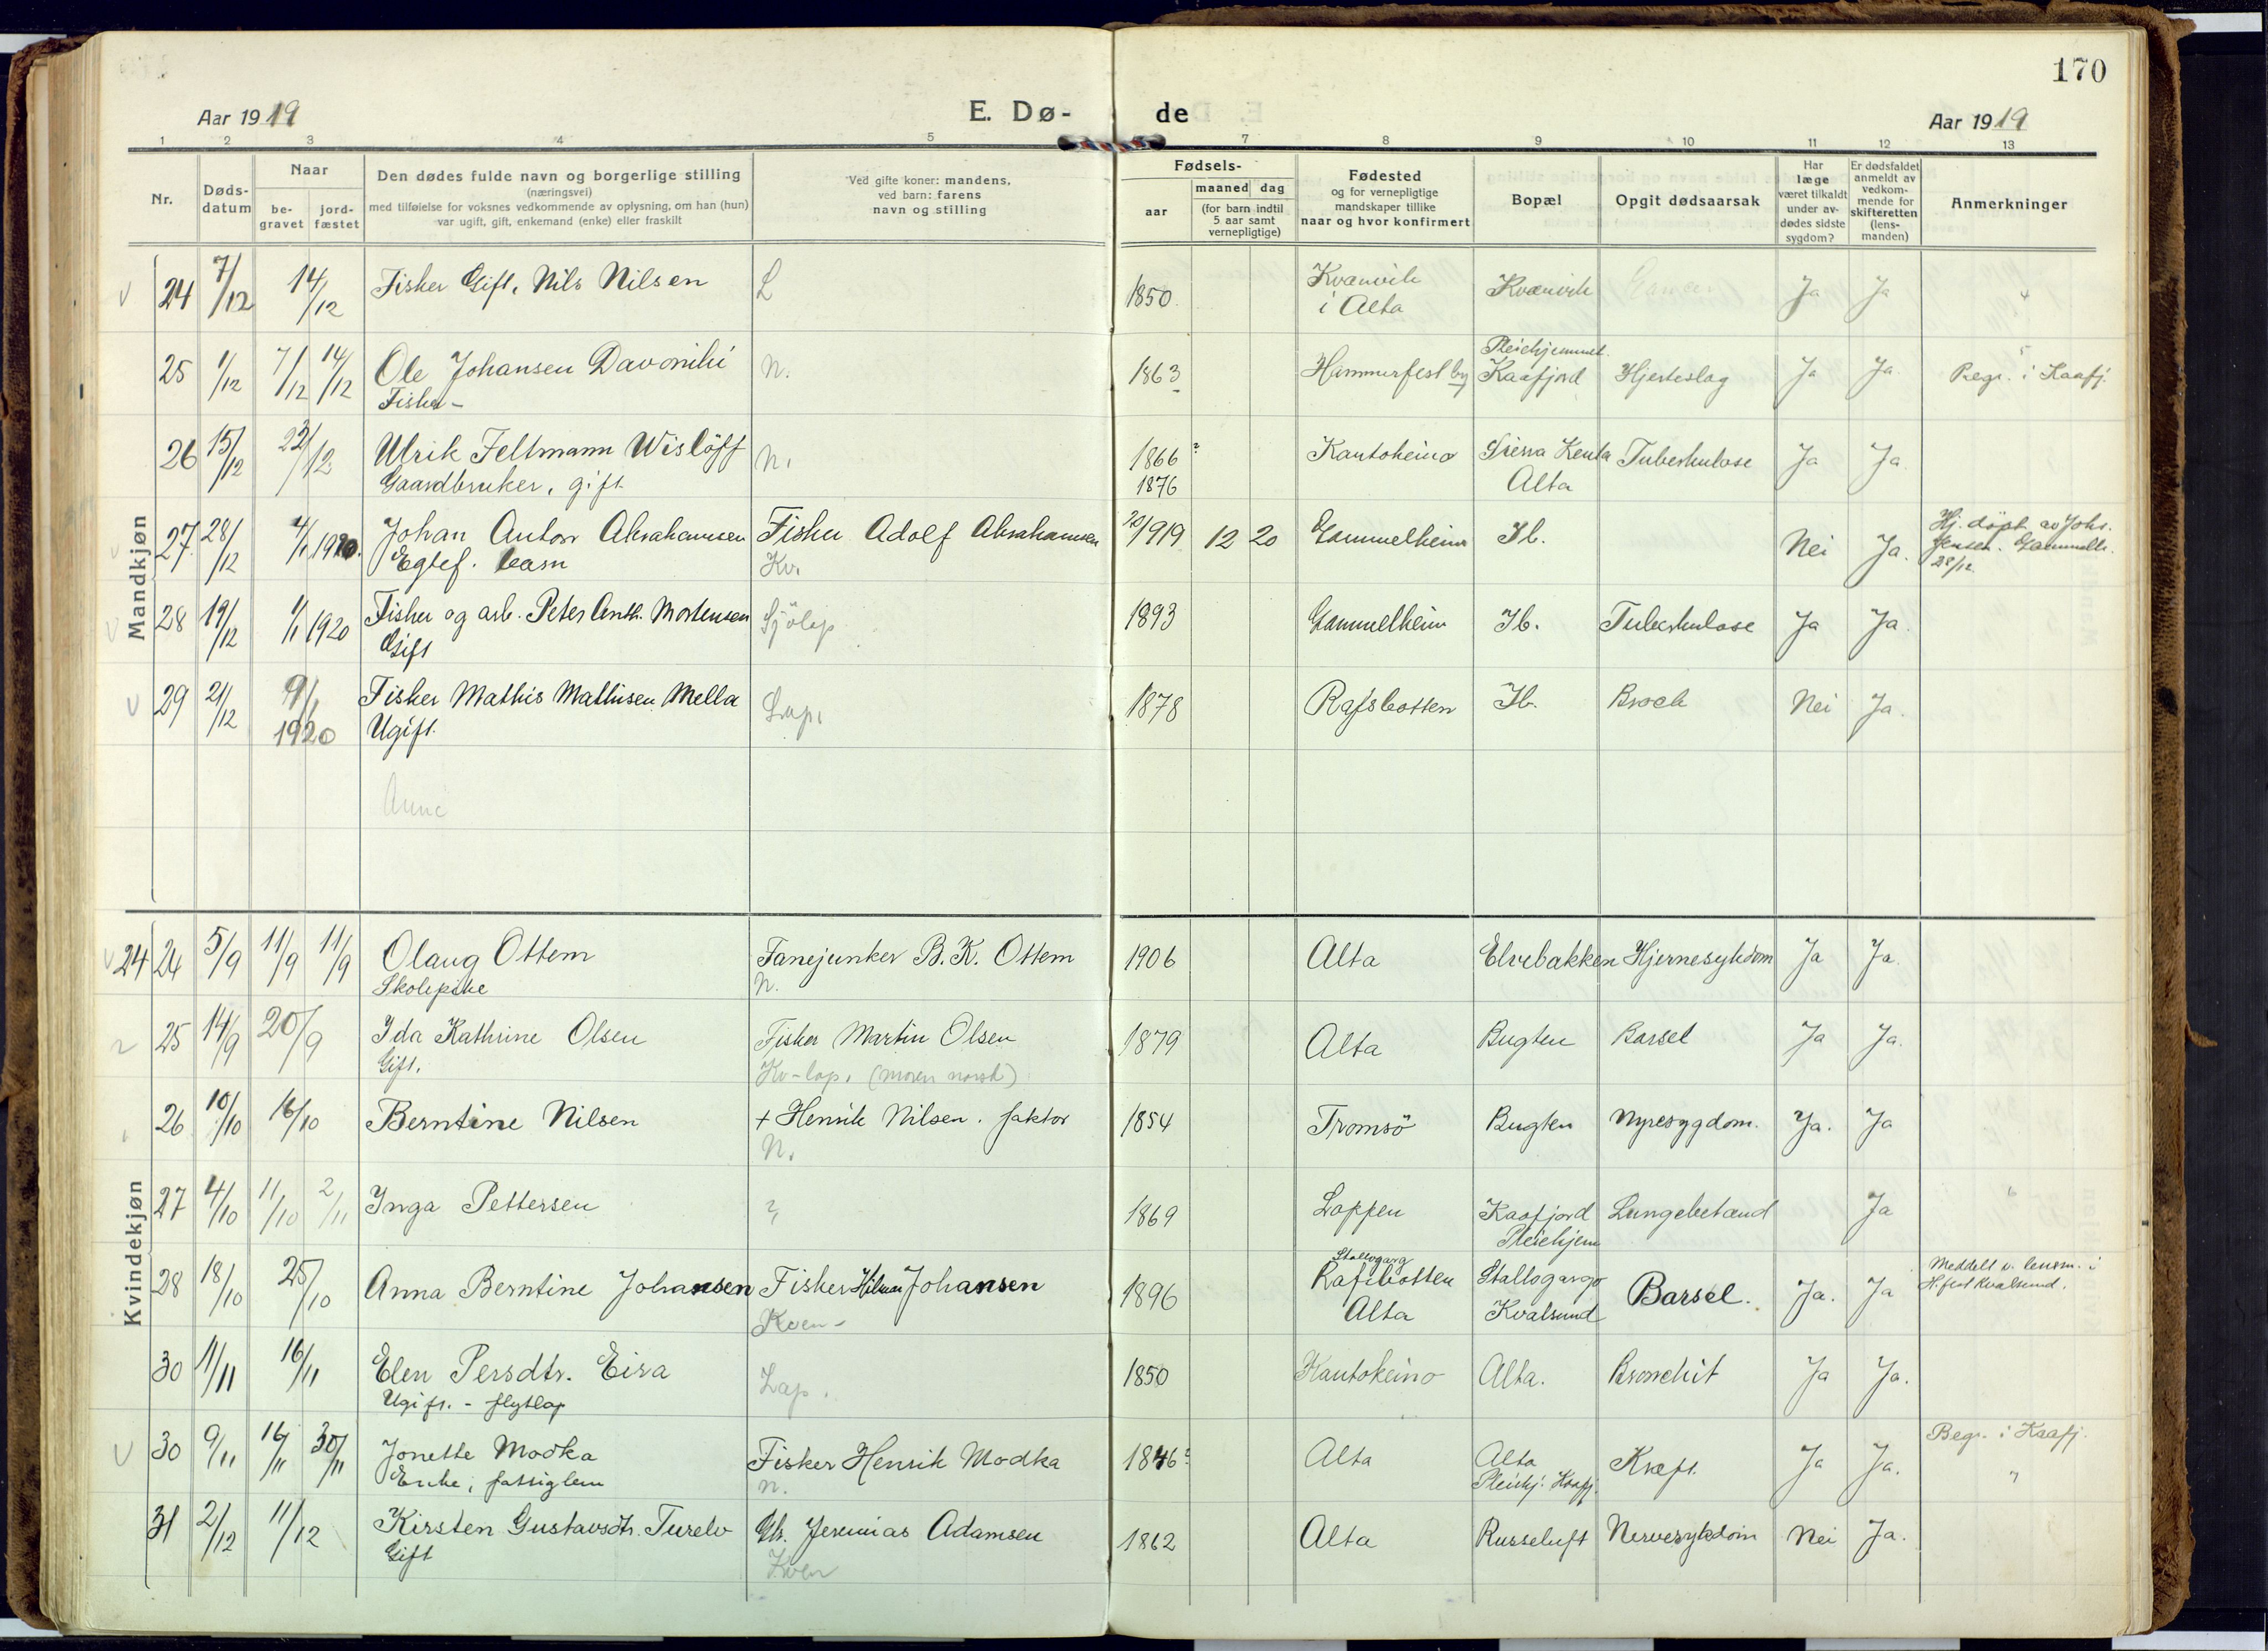 170
Aar 1919 E. Dø- de Aar 1919
1 2 3 4 5 7 8 9 10 11 12 13
Nr.
Døds-
datum
Naar
be-
gravet
jord-
fæstet
Den dødes fulde navn og borgerlige stilling
(næringsvei)
med tilføielse for voksnes vedkommende av oplysning, om han (hun)
var ugift, gift, enkemand (enke) eller fraskilt
Ved gifte koner: mandens,
ved barn: farens
navn og stilling
Fødsels-
aar
maaned dag
(for barn indtil
5 aar samt
vernepligtige)
Fødested
og for vernepligtige
mandskaper tillike
naar og hvor konfirmert
Bopæl
Opgit dødsaarsak
Har
læge
været tilkaldt
under av-
dødes sidste
sygdom?
Er dødsfaldet
anmeldt av
vedkom-
mende for
skifteretten
(lens-
manden)
Anmerkninger
Mandkjøn
24 7/12 14/12 Fisker Gift, Nils Nilsen L 1850 Kvænvik Kvænvik Ja Ja
i Alta
Pleiehjemmet
25 1/12 7/12 14/12 Ole Johansen Davonihi N. 1863 Hammerfest by Kaafjord Hjerteslag Ja Ja Begr. i Kaafj.
Fisker -
26 15/12 22/12 Ulrik Feltmann Wisløff N. 1866 ? Kautokeino Sierra Kenta Tuberkulose Ja Ja
Gaardbruker, gift 1876 Alta
27 28/12 4/1 1920. Johan Anton Abrahamsen Fisker Adolf Abrahamsen 20/1919 12 20 Gammelheim Ib. Nei Ja. Hj. döpt av Johs.
Egtef. barn Kv. Jensen. Gammelh.
28/12
28 19/12 4/1 1920 Fisker og arb. Peter Anth. Mortensen Sjölap 1893 Gammelheim Ib. Tuberkulose Ja Ja.
Gift
29 21/12 9/1 Fisker Mathis Mathisen Mella Lap. 1878 Rafsbotten Ib. Brock Nei Ja.
1920 Ugift.
Anne
Kvindekjøn
24 24 5/9 11/9 11/9 Olaug Ottem Fanejunker B. K. Ottem 1906 Alta Elvebakken Hjernesykdom Ja Ja.
Skolepike N.
25 14/9 20/9 Ida Kathrine Olsen Fisker Martin Olsen 1879 Alta Bugten Barsel Ja Ja.
Gift. Kv-lap. (moren norsk)
26 10/10 16/10 Berntine Nilsen + Henrik Nilsen. faktor 1854 Tromsö Bugten Nyresygdom. Ja. Ja
N.
27 4/10 11/10 2/11 Inga Pettersen ? 1869 Loppen Kaafjord Lungebetænd Ja
Pleiehjem
Stallogarg Meddelt v. lensm. i
28 18/10 25/10 Anna Berntine Johansen Fisker Hilmar Johansen 1896 Rafsbotten Stallogargo Barsel. Ja. Ja H.fest Kvalsund.
Kven - Alta Kvalsund
30 11/11 16/11 Elen Persdtr. Eira Lap. 1850 Kautokeino Alta. Bronchit Ja Ja.
Ugift. - flytlap
30 9/11 16/11 30/11 Jonette Modka Fisker Henrik Modka 1846? Alta Alta Kræft. Ja Ja. Begr. i Kaafj.
Enke, fattiglem N. Pleiehj. Kaafj. "
31 2/12 11/12 Kirsten Gustavsdtr. Turelv Gb. Jeremias Adamsen 1862 Alta Russeluft Nervesykdom Nei Ja.
Gift Kven